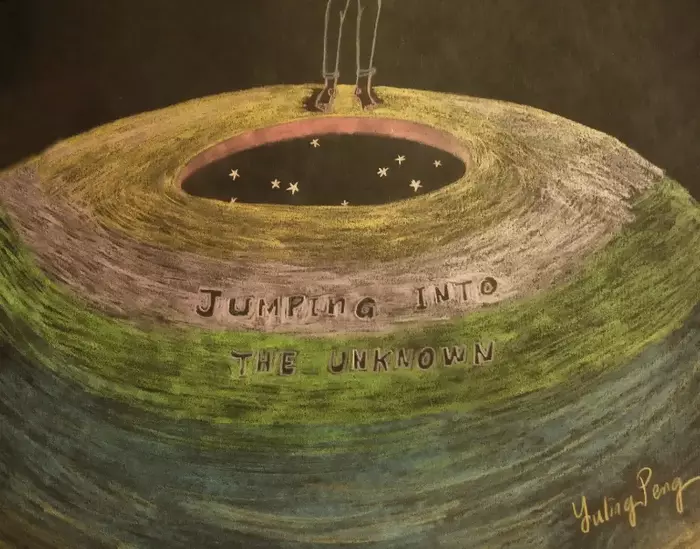 JUMPING INTO
THE UNKNOWN
Yuling Peng